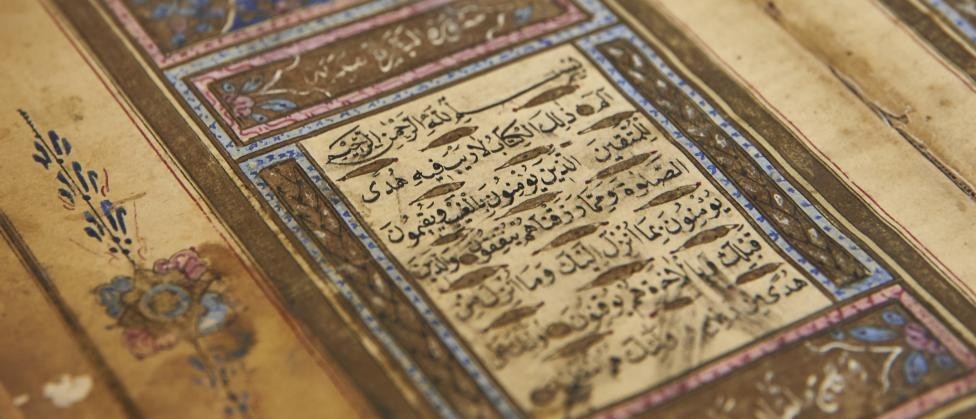 سورة البقرة
بسم الله الرحمن الرحيم
الم ذلك الكتاب لا ريب فيه هدى
للمتقين الذين يؤمنون بالغيب ويقيمون
الصلوة ومما رزقناهم ينفقون والذين
يؤمنون بما أنزل إليك وما أنزل من
قبلك وبالآخرة هم يوقنون أولئك على
هدى من ربهم وأولئك هم